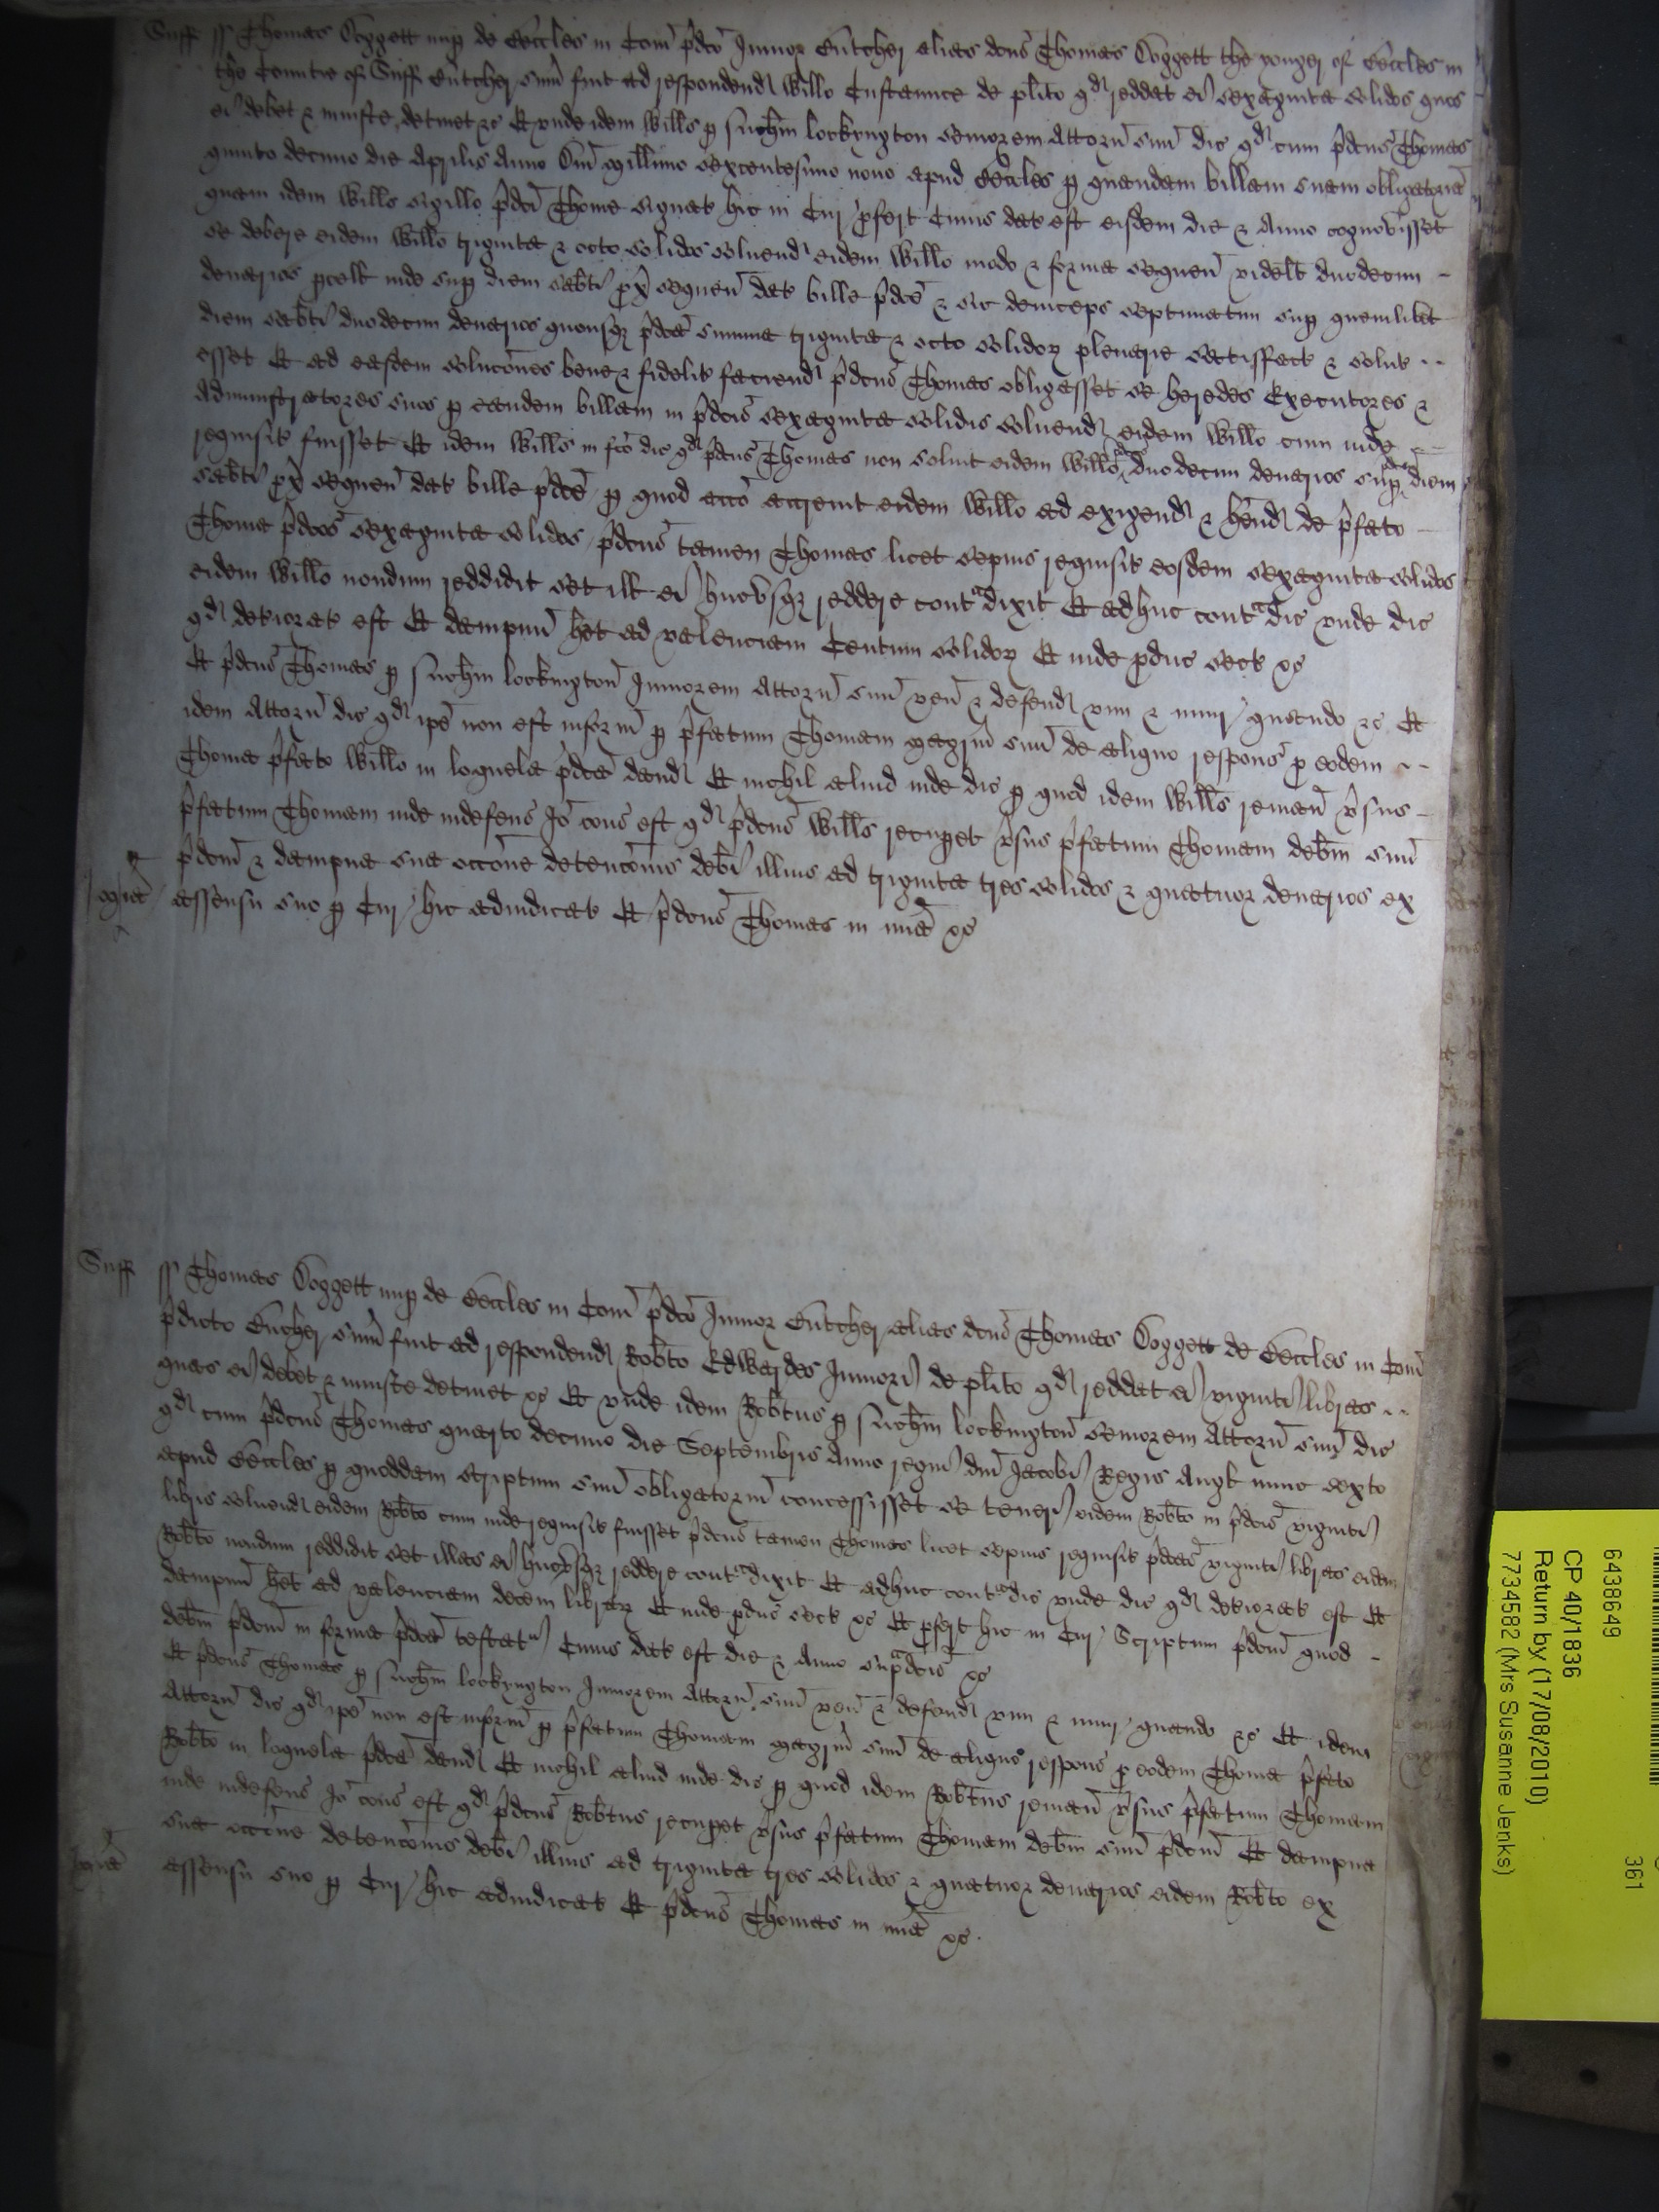 Suff ss Thomas Doggett nup de Beccles in Com p̄dco Junior Butcher alias dcus Thomas Doggett the yonger of Beccles in
the Countie of Suff Butcher sum̄ fuit ad respondend Willo Custaunce de plito qd reddat ei sexaginta solidos quos
ei debet & iniuste detinet &c Et unde idem Wills p Joh̄em lockyngton seniorem Attorn̄ suū dic qd cum p̄dcus Thomas
quinto decimo die Aprilis Anno Dn̄i millimo sexcentesimo nono apud Beccles p quandam billam suam obligatoriā
quam idem Wills sigillo p̄dci Thome signat hic in Cur profert Cuius dat est eisdem die & Anno cognovisset
se debere eidem Willo triginta & octo solidos solvend eidem Willo modo & forma sequen̄ videlt duodecim
denarios pcell inde sup diem sabti prox̄ sequen̄ dat bille p̄dce & sic deinceps septimatim sup quemlibt
diem sabti duodecim denarios quousq̨ p̄dca summa triginta & octo solidor̨ plenarie satisfact & solut
esset Et ad easdem soluc̄ones bene & fidelit faciend p̄dcus Thomas obligasset se heredes Executores &
Administratores suos p eandem billam in p̄dcis sexaginta solidis solvend eidem Willo cum inde
requisit fuisset Et idem Wills in fco dic qd p̄dcus Thomas non solvit eidem Willo p̄dcos duodecim denarios sup p̄dcm diem
sabti prox̄ sequen̄ dat bille p̄dce p quod acco accrevit eidem Willo ad exigend & hend de p̄fato
Thoma p̄dcos sexaginta solidos p̄dcus tamen Thomas licet sepius requisit eosdem sexaginta solidos
eidem Willo nondum reddidit set ill ei hucusq̨ reddere contᵃdixit Et adhuc contᵃdic unde dic
qd deteriorat est Et dampnū het ad valenciam Centum solidor̨ Et inde producit sect &c
Et p̄dcus Thomas p Joh̄em lockington Juniorem Attorn̄ suū ven̄ & defend vim & iniur quando &c Et
idem Attorn̄ dic qd ipe non est inform̄ p p̄fatum Thomam magrm̄ suū de aliquo respons̄ p eodem
Thoma p̄fato Willo in loquela p̄dca dand Et nichil aliud inde dic p quod idem Wills reman̄ v̄sus
p̄fatum Thomam inde indefens̄ Jo cons̄ est qd p̄dcus Wills recupet v̄sus p̄fatum Thomam debm̄ suū
p̄dcm & dampna sua occone detenc̄onis debi illius ad triginta tres solidos & quatuor denarios ex
mia assensu suo p Cur hic adiudicat Et p̄dcus Thomas in mia &c
Suff ss Thomas Doggett nup de Beccles in Com p̄dco Junior Butcher alias dcus Thomas Doggett de Beccles in Com
p̄dicto Butcher sum̄ fuit ad respondend Robto Edwardes Juniori de plito qd reddat ei viginti libras
quas ei debet & iniuste detinet &c Et unde idem Robtus p Joh̄em lockington seniorem Attorn̄ suū dic
qd cum p̄dcus Thomas quarto decimo die Septembris Anno regni dn̄i Jacobi Regis Angl nunc sexto
apud Beccles p quoddam scriptum suū obligatoriū concessisset se teneri eidem Robto in p̄dcis viginti
libris solvend eidem Robto cum inde requisit fuisset p̄dcus tamen Thomas licet sepius requisit p̄dcas viginti libras eidem
Robto nondum reddidit set illas ei hucusq̨ reddere contᵃdixit Et adhuc contᵃdic unde dic qd deteriorat est Et
dampnū het ad valenciam decem librar̨ Et inde producit sect &c Et profert hic in Cur Scriptum p̄dcm quod
debm̄ p̄dcm in forma p̄dca testatᵘʳ Cuius dat est die & Anno sup̄dcis &c
Et p̄dcus Thomas p Joh̄em lockyngton Juniorem Attorn̄ suū ven̄ & defend vim & iniur quando &c Et idem
Attorn̄ dic qd ipe non est inform̄ p p̄fatum Thomam magrm̄ suū de aliquo respons̄ p eodem Thoma p̄fato
Robto in loquela p̄dca dand Et nichil aliud inde dic p quod idem Robtus reman̄ v̄sus p̄fatum Thomam
inde indefens̄ Jo cons̄ est qd p̄dcus Robtus recupet v̄sus p̄fatum Thomam debm̄ suū p̄dcm Et dampna
sua occone detenc̄onis debi illius ad triginta tres solidos & quatuor denarios eidem Robto ex
mia assensu suo p Cur hic adiudicat Et p̄dcus Thomas in mia &c
6438649 361
CP 40/1836
Return by (17/08/2010)
7734582 (Mrs Susanne Jenks)